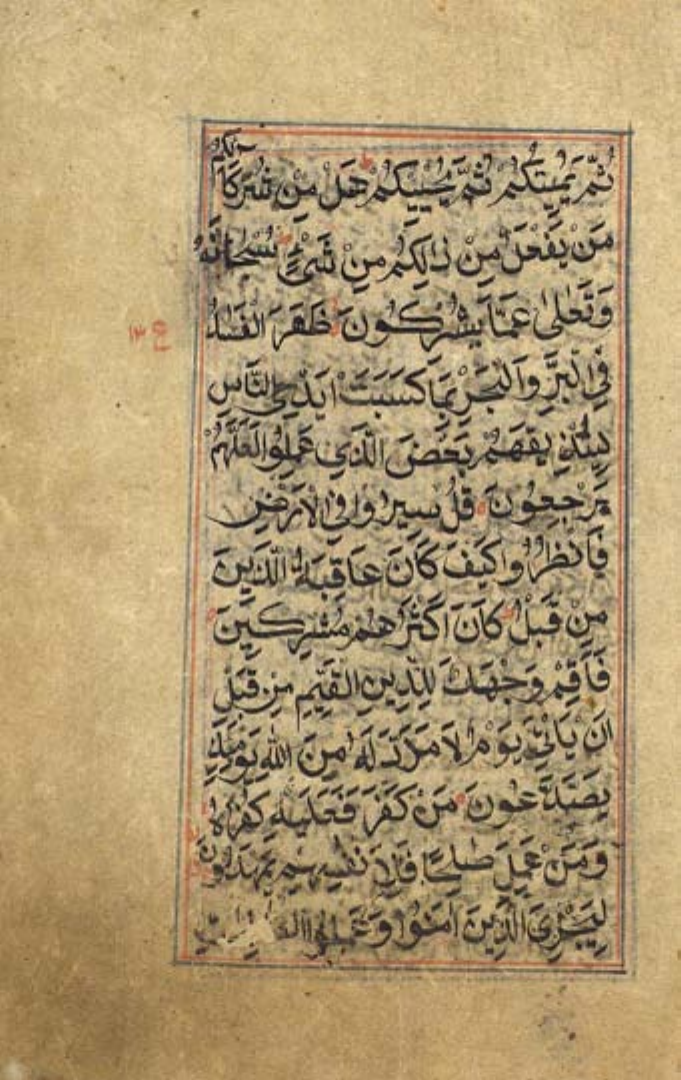 ثُمَّ يُمِيتُكُمْ ثُمَّ يُحْيِيكُمْ هَلْ مِنْ شُرَكَآئِكُمْ
مَنْ يَفْعَلُ مِنْ ذَالِكُمْ مِنْ شَيْءٍ سُبْحَانَهُ
وَتَعَلٰى عَمَّا يُشْرِكُونَ ظَهَرَ الْفَسَادُ
فِي الْبَرِّ وَالْبَحْرِ بِمَا كَسَبَتْ اَيْدِي النَّاسِ
لِيُذِيقَهُمْ بَعْضَ الَّذِي عَمِلُوا لَعَلَّهُمْ
يَرْجِعُونَ قُلْ سِيرُوا فِي الْاَرْضِ
فَانْظُرُوا كَيْفَ كَانَ عَاقِبَةُ الَّذِينَ
مِنْ قَبْلُ كَانَ اَكْثَرُهُمْ مُشْرِكِينَ
فَاَقِمْ وَجْهَكَ لِلدِّينِ الْقَيِّمِ مِنْ قَبْلِ
اَنْ يَاْتِيَ يَوْمٌ لَا مَرَدَّ لَهُ مِنَ اللهِ يَوْمَئِذٍ
يَصَّدَّعُونَ مَنْ كَفَرَ فَعَلَيْهِ كُفْرُهُ
وَمَنْ عَمِلَ صٰلِحًا فَلِاَنْفُسِهِمْ يَمْهَدُونَ
لِيَجْزِيَ الَّذِينَ اٰمَنُوا وَعَمِلُوا